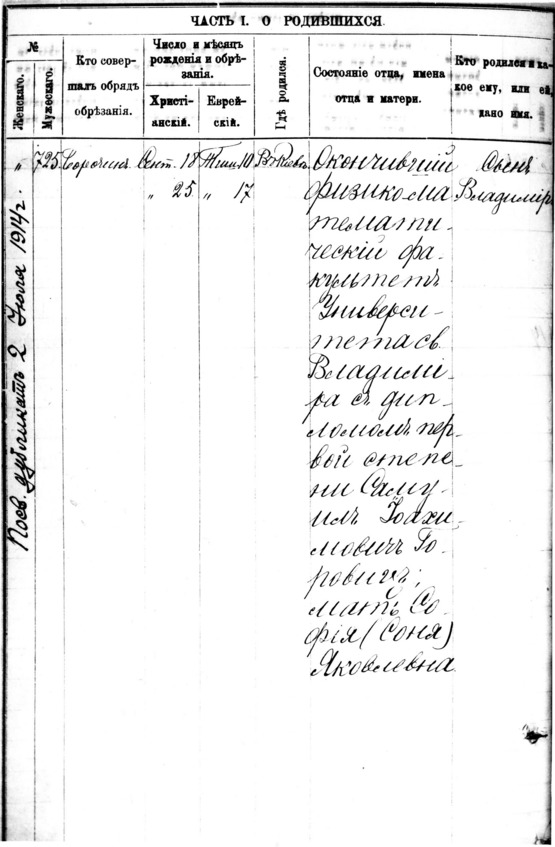 ЧАСТЬ I. О РОДИВШИХСЯ.
№
Женскаго.
Мужескаго.
Кто совер-
шалъ обрядъ
обрѣзанія.
Число и мѣсяцъ
рожденія и обрѣ-
занія.
Христі-
анскій.
Еврей-
скій.
Гдѣ родился.
Состояніе отца, имена
отца и матери.
Кто родился и ка-
кое ему, или ей,
дано имя.
" 725 Сорочкинъ Сент. 18 Тиш. 10 В Кіевѣ Окончившій Сынъ
" 25 " 17 физико-ма Владиміръ
темати-
ческій фа-
культетъ
Универси-
тета св.
Владимі-
ра съ дип-
ломомъ пер-
вой степе-
ни Саму-
илъ Іоахи-
мовичъ Го-
ровичъ;
мать Со-
фія (Соня)
Яковлевна
дубликатъ 2 Іюля 1914 г.